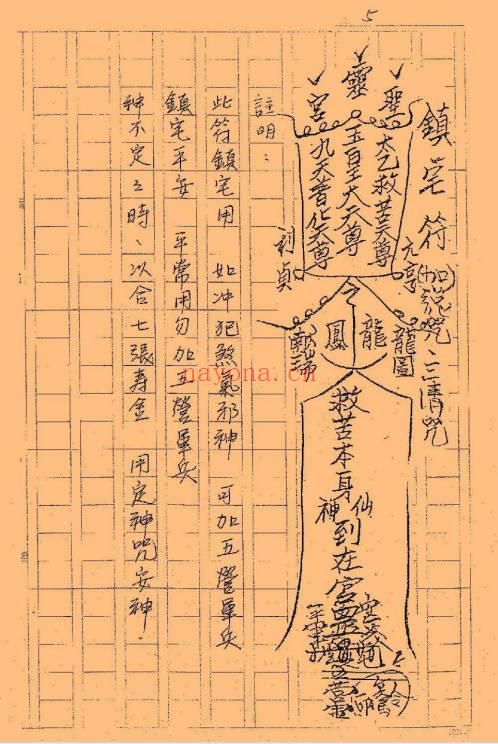 5
鎮宅符(加)說咒、三清咒
聖靈宮
太乙救苦天尊
玉皇大天尊
九天普化天尊
元亨
利貞
令
龍圖
龍
鳳
救苦本身到在宮
仙
神
註明：
此符鎮宅用 如冲犯煞氣邪神 可加五營軍兵
鎮宅平安 平常用勿加五營軍兵
神不定之時、以合七張壽金 用定神咒安神
nayona.cn